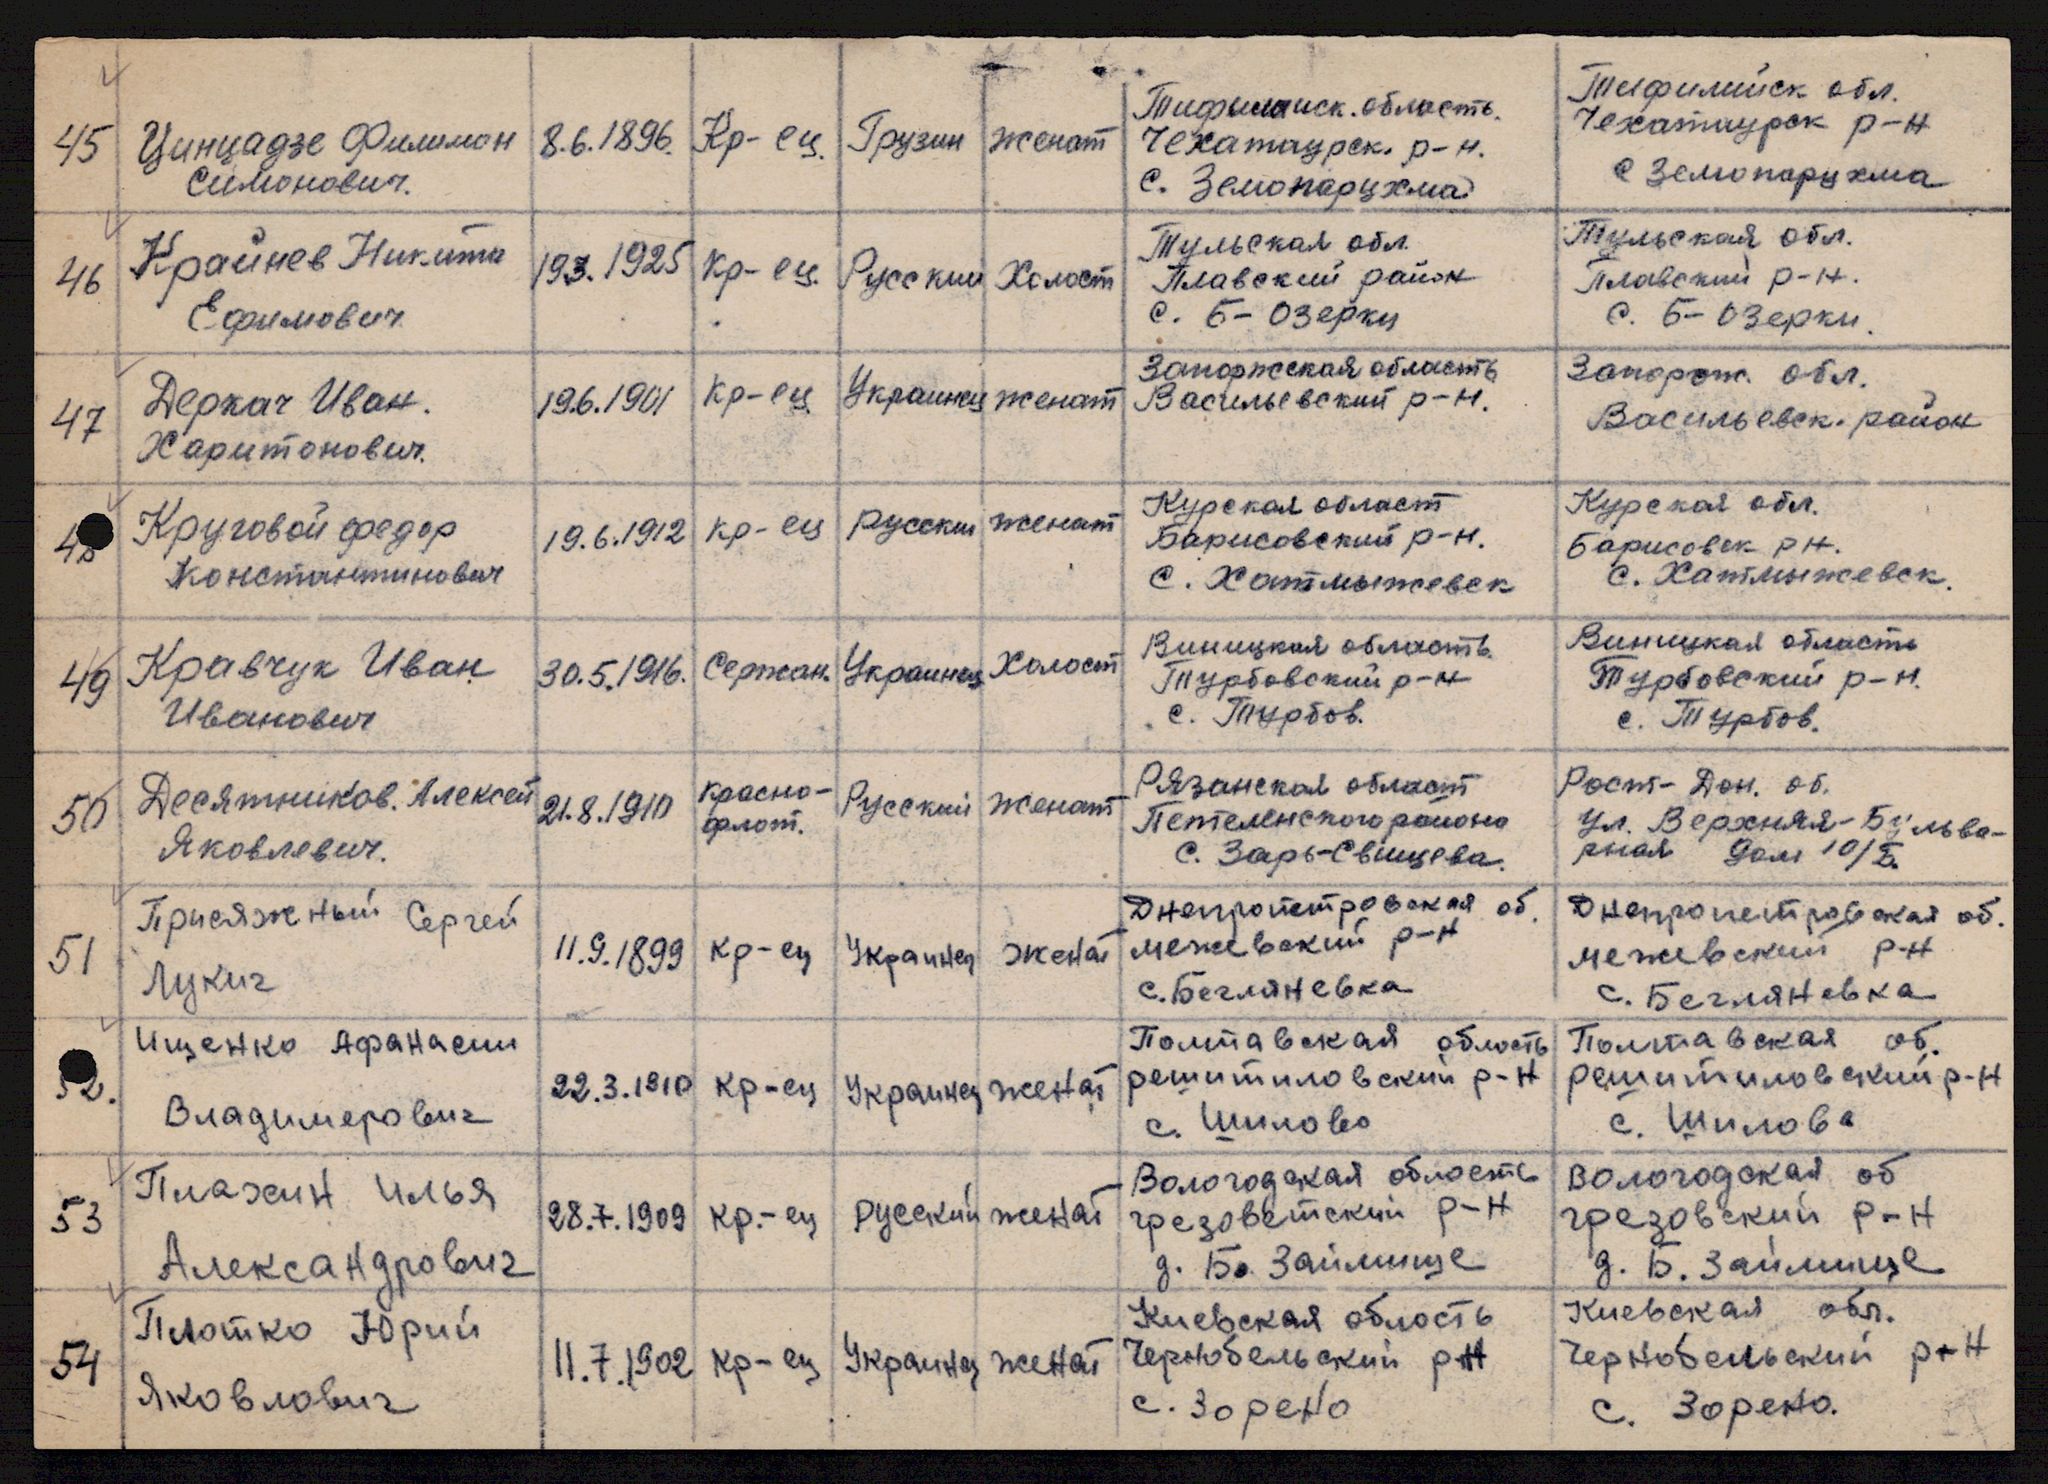 45 Цинцадзе Филимон 8.6.1896. Кр-ец. Грузин женат
Симонович.
Тифилийск. область.
Чехатаурск. р-н.
с. Земопарцхма
Тифилийск обл.
Чехатаурск р-н
с Земопарцхма
46 Крайнев Никита 19.3.1925 Кр-ец. Русский Холост
Ефимович
Тульская обл.
Плавский район
с. Б-Озерки
Тульская обл.
Плавский р-н.
с. Б-Озерки.
47 Деркач Иван. 19.6.1901 Кр-ец. Украинец женат
Харитонович.
Запоржская область
Васильевский р-н.
Запорож. обл.
Васильевск. район
48 Круговой федор 19.6.1912 Кр-ец русский женат
Константинович
Курская област
Барисовский р-н.
с. Хатмыжевск
Курская обл.
Барисовск р н.
с. Хатмыжевск.
49 Кравчук Иван 30.5.1916. Сержан. Украинец Холост
Иванович
Виницкая область.
Турбовский р-н
с. Турбов.
Виницкая область
Турбовский р-н.
с. Турбов.
50 Десятников. Алексей 21.8.1910 Красно- Русский женат
Яковлевич. флот.
Рязанская област
Петеленского района
с. Зарь-Свищева.
Рост-Дон. об.
ул. Верхняя-Бульва-
рная дом 10/
51 Присяжный Сергей 11.9.1899 кр-ец Украинец женат
Лукич
Днепропетровская об.
межевский р-н
с. Бегляневка
Днепропетровская об.
межевский р-н
с. Бегляневка
52. Ищенко Афанасии 22.3.1910 кр-ец Украинец женат
Владимерович
Полтавская область
решитиловский р-н
с. Шилово
Полтавская об.
решитиловский р-н
с. Шилова
53 Плахин Илья 28.7.1909 кр.-ец русский женат
Александрович
Вологодская область
грезоветский р-н
д. Бо. Займище
Вологодская об
грезовский р-н
д. Б. Займище
54 Плотко Юрий 11.7.1902 кр-ец Украинец женат
Яковлович
Киевская область
Чернобельский р-н
с. Зорено
Киевская обл.
Чернобельский р-н
с. Зорено.